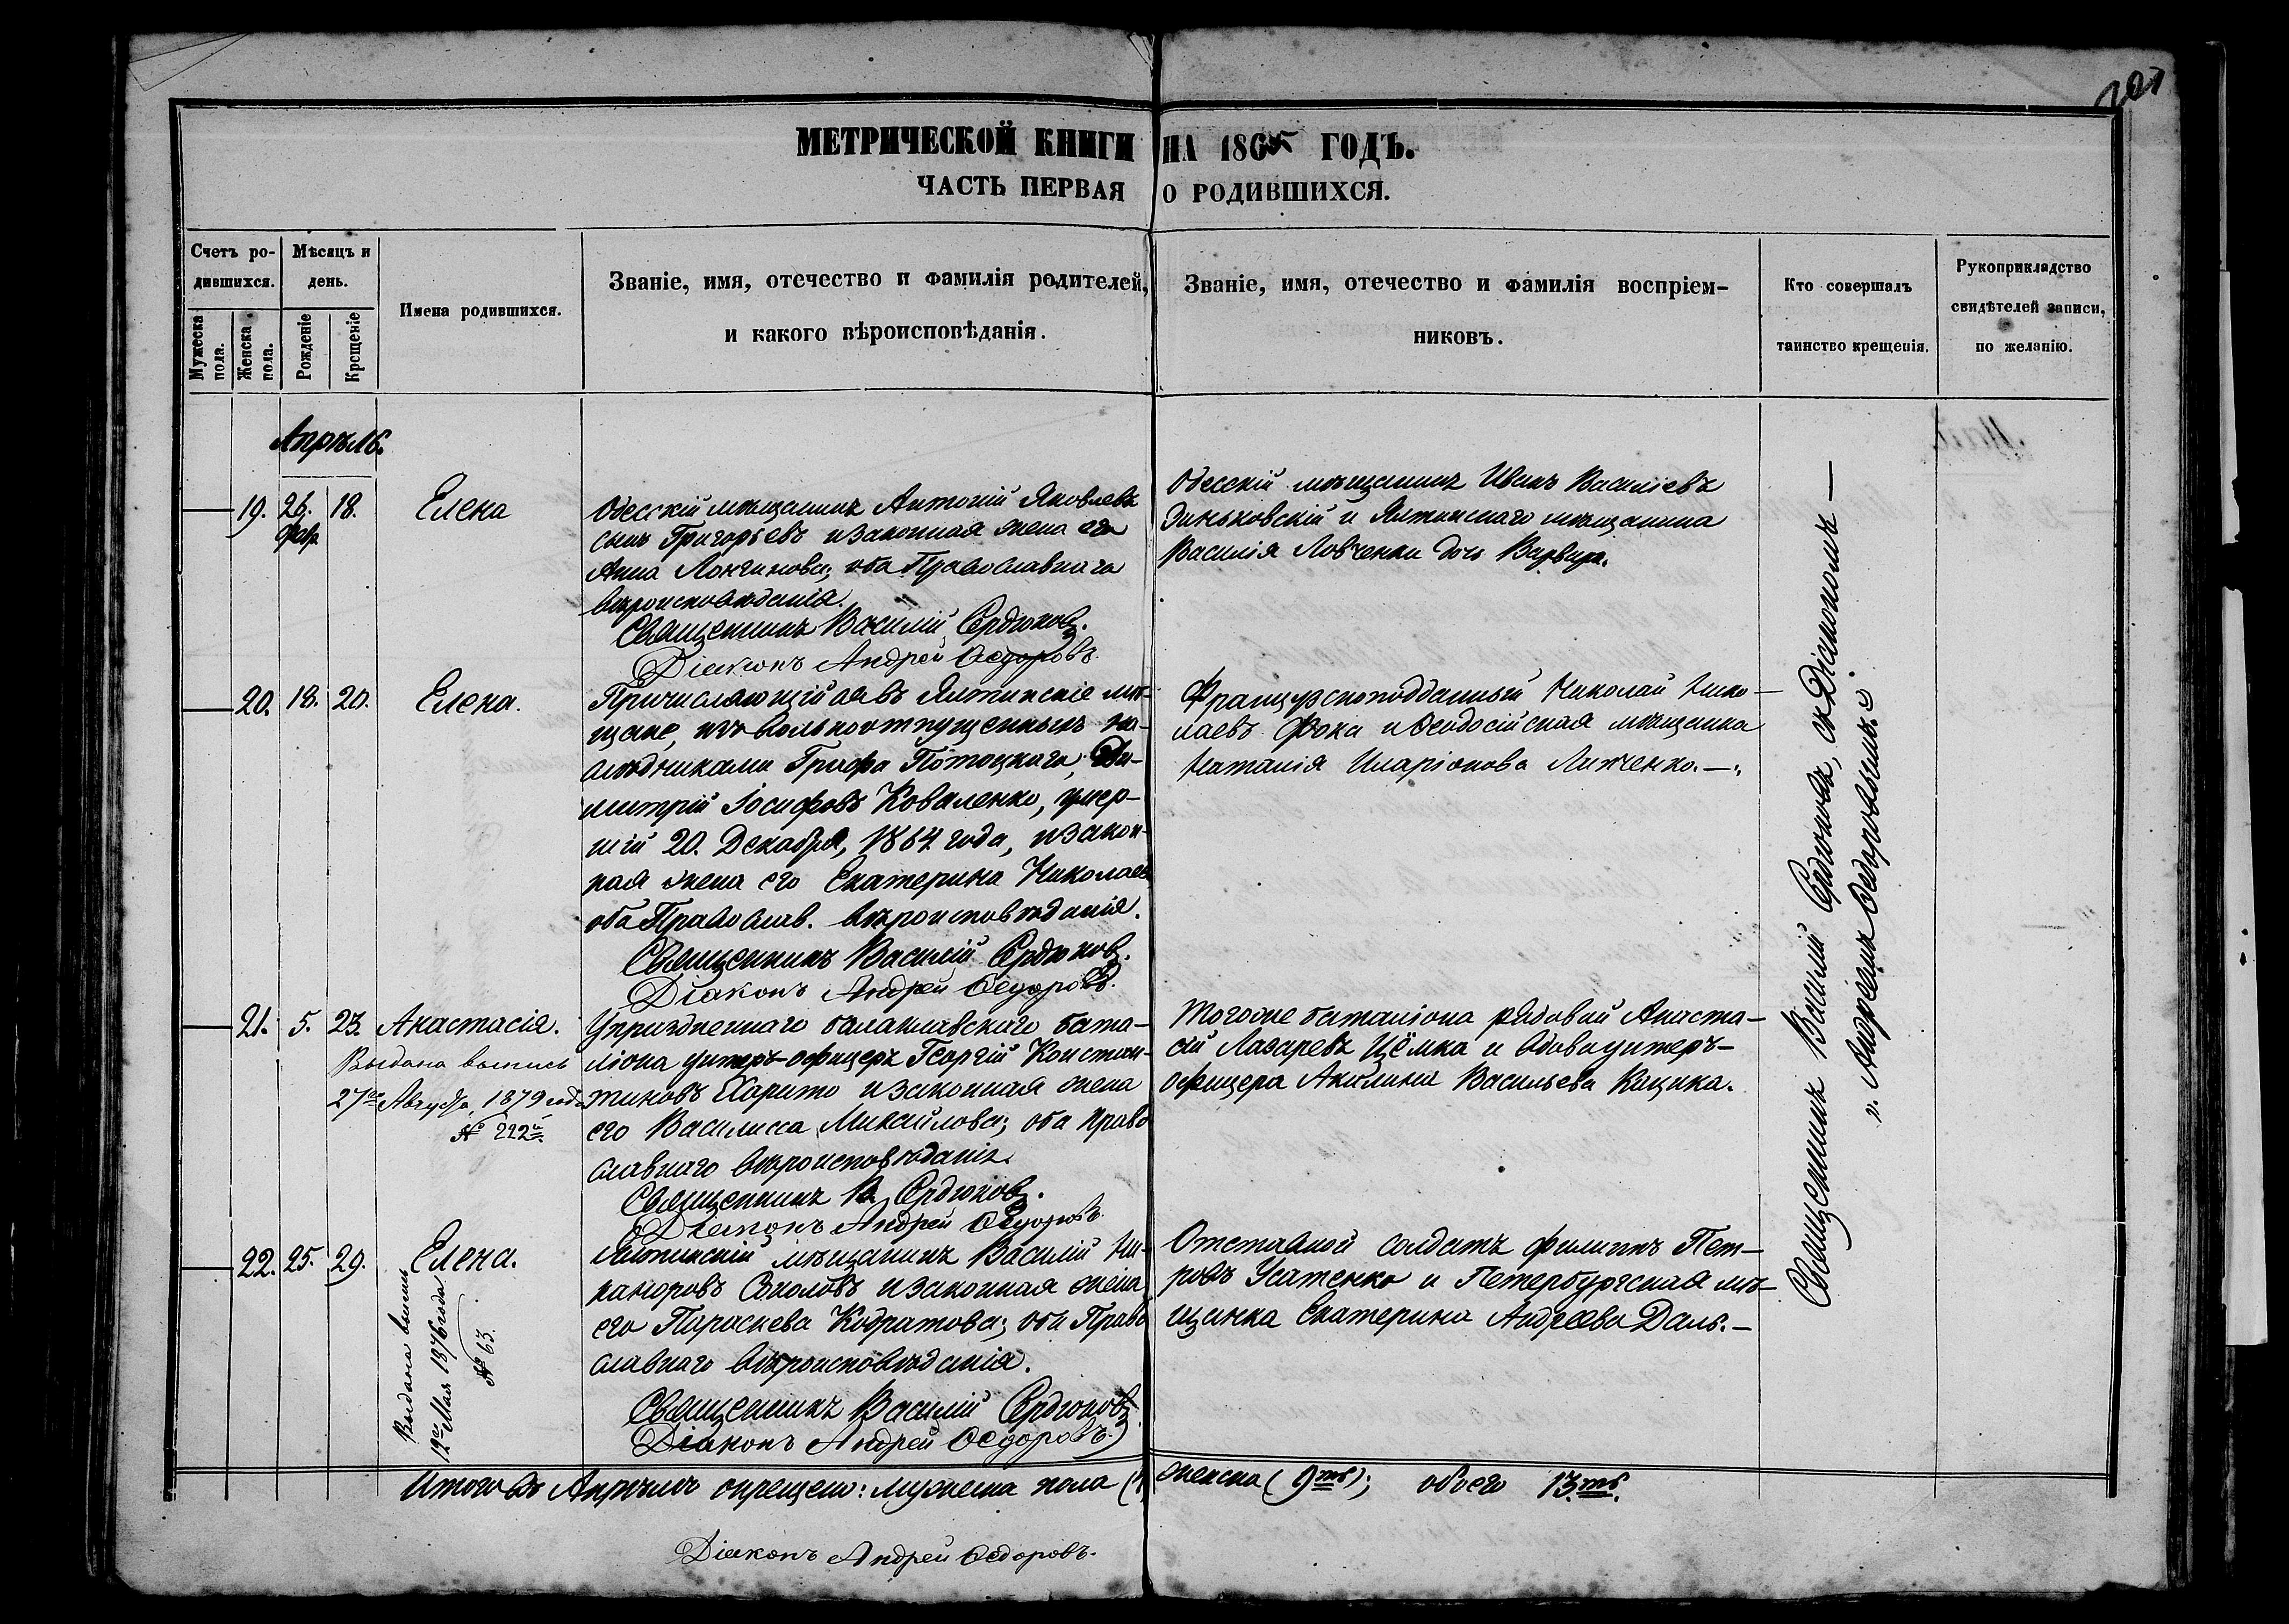 201
МЕТРИЧЕСКОЙ КНИГИ НА 1865 ГОДЪ.
ЧАСТЬ ПЕРВАЯ О РОДИВШИХСЯ.
Счетъ ро-
дившихся.
Мужеска пола.
Женска пола.
Мѣсяцъ и
день.
Рожденіе
Крещеніе
Имена родившихся.
Званіе, имя, отечество и фамилія родителей,
и какого вѣроисповѣданія.
Званіе, имя, отечество и фамилія воспріем-
никовъ.
Кто совершалъ
таинство крещенія.
Рукоприкладство
свидѣтелей записи,
по желанію.
Апрѣль.
19. 26. 18. Елена
Февр
Одесскій мѣщанинъ Антоній Яковлевъ
сынъ Григорьевъ и законная жена его
Анна Лонгинова; оба Православнаго
вѣроисповѣданія.
Священникъ Василій Сердюковъ.
Діаконъ Андрей Ѳедоровъ.
Одесскій мѣщанинъ Иванъ Василіевъ
Зиньковскій и Ялтинскаго мѣщанина
Василія Ловченки дочь Варвара.
20. 18. 20. Елена.
Причисляющійся въ Ялтинскіе мѣ-
щане, изъ вольноотпущенныхъ на-
слѣдниками Графа Потоцкаго, Ди-
митрій Іосифовъ Коваленко, умер-
шій 20. Декабря, 1864 года, и закон-
ная жена его Екатерина Николаева
оба Православ. вѣроисповѣданія.
Священникъ Василій Сердюковъ.
Діаконъ Андрей Ѳедоровъ.
Французскоподданный Николай Нико-
лаевъ Фока и Ѳеодосійская мѣщанка
Наталія Иларіонова Линченко.—
21. 5. 23. Анастасія.
Выдана выпись
27го Августа, 1879 года
№ 222й
Упраздненнаго балаклавскаго бата-
ліона унтеръ-офицеръ Георгій Констан-
тиновъ Харито и законная жена
его Василиса Михайлова; оба Право
славнаго вѣроисповѣданія.
Священникъ В. Сердюковъ.
Діаконъ Андрей Ѳедоровъ.
Тогоже баталіона рядовой Анаста-
сій Лазаревъ Цёмка и вдова унтеръ-
офицера Акилина Васильева Кацика.
22. 25. 29. Елена.
Выдана выпись
12го Мая 1876 года
№ 63.
Ялтинскій мѣщанинъ Василій Ни-
каноровъ Соколовъ и законная жена
его Параскева Кодратова; оба Право
славнаго вѣроисповѣданія.
Священникъ Василій Сердюковъ.
Діаконъ Андрей Ѳедоровъ.
Отставной солдатъ Филиппъ Пет-
ровъ Усатенко и Петербургская мѣ-
щанка Екатерина Андреева Даль.—
Священникъ Василій Сердюковъ, съ Діакономъ —
Андреемъ Ѳедоровымъ.
Итого въ Апрѣлѣ крещено: мужеска пола женска (9ть); обоего 13ть.
Діаконъ Андрей Ѳедоровъ.